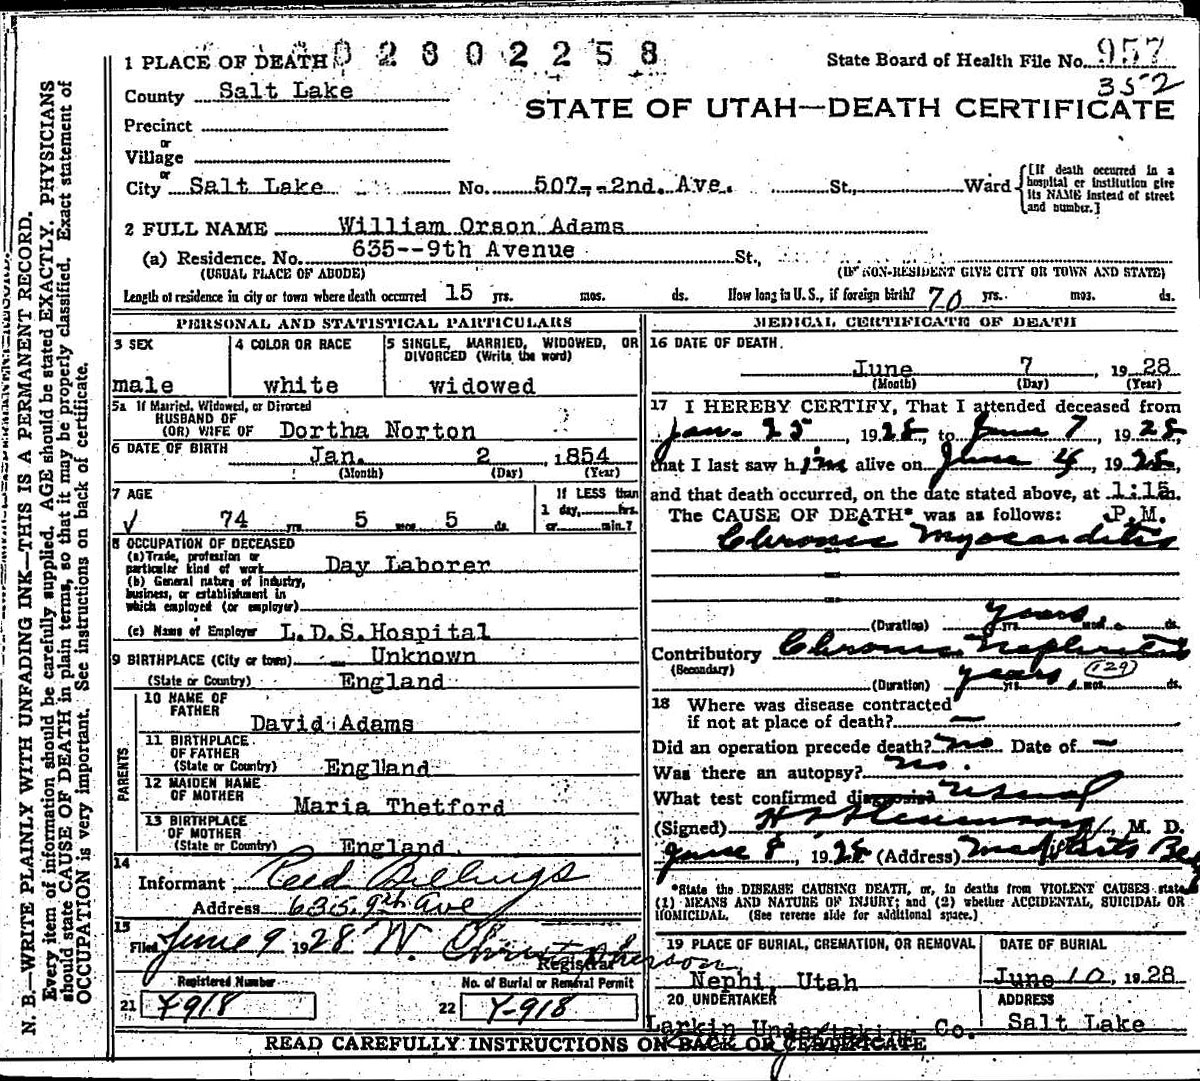 N. B.—WRITE PLAINLY WITH UNFADING INK—THIS IS A PERMANENT RECORD.
Every item of information should be carefully supplied. AGE should be stated EXACTLY. PHYSICIANS
should state CAUSE OF DEATH in plain terms, so that it may be properly classified. Exact statement of
OCCUPATION is very important. See instructions on back of certificate.
1 PLACE OF DEATH 02802258
State Board of Health File No. 957
352
County Salt Lake
STATE OF UTAH—DEATH CERTIFICATE
Precinct
or
Village
or
City Salt Lake No. 507--2nd. Ave. St., Ward
[If death occurred in a
hospital or institution give
its NAME instead of street
and number.]
2 FULL NAME William Orson Adams
(a) Residence. No. 635--9th Avenue St.,
(USUAL PLACE OF ABODE) (IF NON-RESIDENT GIVE CITY OR TOWN AND STATE)
Length of residence in city or town where death occurred 15 yrs. mos. ds. How long in U.S., if foreign birth? 70 yrs. mos. ds.
PERSONAL AND STATISTICAL PARTICULARS
3 SEX
male
4 COLOR OR RACE
white
5 SINGLE, MARRIED, WIDOWED, OR
DIVORCED (Write the word)
widowed
5a If Married, Widowed, or Divorced
HUSBAND OF
(OR) WIFE OF Dortha Norton
6 DATE OF BIRTH Jan. 2 1854
(Month) (Day) (Year)
7 AGE
74 yrs 5 mos 5 ds.
If LESS than
1 day,....hrs.
or....min.?
8 OCCUPATION OF DECEASED
(a) Trade, profession or
particular kind of work Day Laborer
(b) General nature of industry,
business, or establishment in
which employed (or employer)
(c) Name of Employer L.D.S.Hospital
9 BIRTHPLACE (City or town) Unknown
(State or Country) England
PARENTS
10 NAME OF
FATHER
David Adams
11 BIRTHPLACE
OF FATHER
(State or Country) England
12 MAIDEN NAME
OF MOTHER
Maria Thetford
13 BIRTHPLACE
OF MOTHER
(State or Country) England
14
Informant Reed Billings
Address 635 9th Ave
15
Filed June 9 1928 W. Christopherson
Registrar
Registered Number
21 Y-918
No. of Burial or Removal Permit
22 Y-918
MEDICAL CERTIFICATE OF DEATH
16 DATE OF DEATH.
June 7 1928
(Month) (Day) (Year)
17 I HEREBY CERTIFY, That I attended deceased from
Jan. 25, 1928, to June 7, 1928,
that I last saw him alive on June 4, 1928,
and that death occurred, on the date stated above, at 1:15m.
The CAUSE OF DEATH* was as follows: P.M.
Chronic Myocarditis
(Duration) years yrs. mos. ds.
Contributory Chronic Nephritis
(Secondary) (129)
(Duration) years yrs. mos. ds.
18 Where was disease contracted
if not at place of death? —
Did an operation precede death? no Date of —
Was there an autopsy? no.
What test confirmed diagnosis? usual
(Signed) M. D.
June 8, 1928 (Address)
*State the DISEASE CAUSING DEATH, or, in deaths from VIOLENT CAUSES state
(1) MEANS AND NATURE OF INJURY; and (2) whether ACCIDENTAL, SUICIDAL OR
HOMICIDAL. (See reverse side for additional space.)
19 PLACE OF BURIAL, CREMATION, OR REMOVAL
Nephi, Utah
DATE OF BURIAL
June 10, 1928
20 UNDERTAKER
Larkin Undertaking Co.
ADDRESS
Salt Lake
READ CAREFULLY INSTRUCTIONS ON BACK OF CERTIFICATE